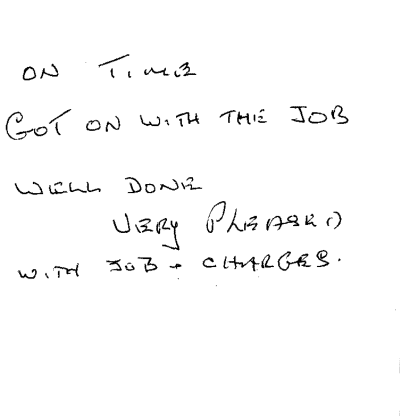 ON TIME
GOT ON WITH THE JOB
WELL DONE
VERY PLEASED
WITH JOB + CHARGES.